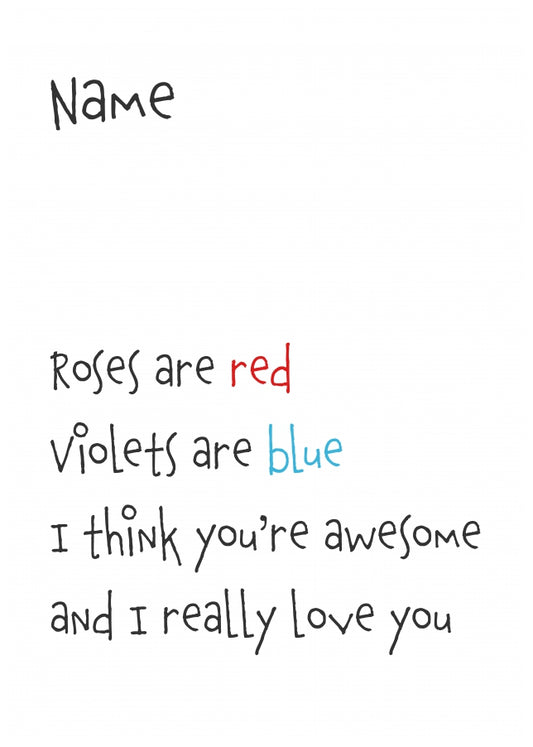 Name
Roses are red
Violets are blue
I think you're awesome
and I really love you